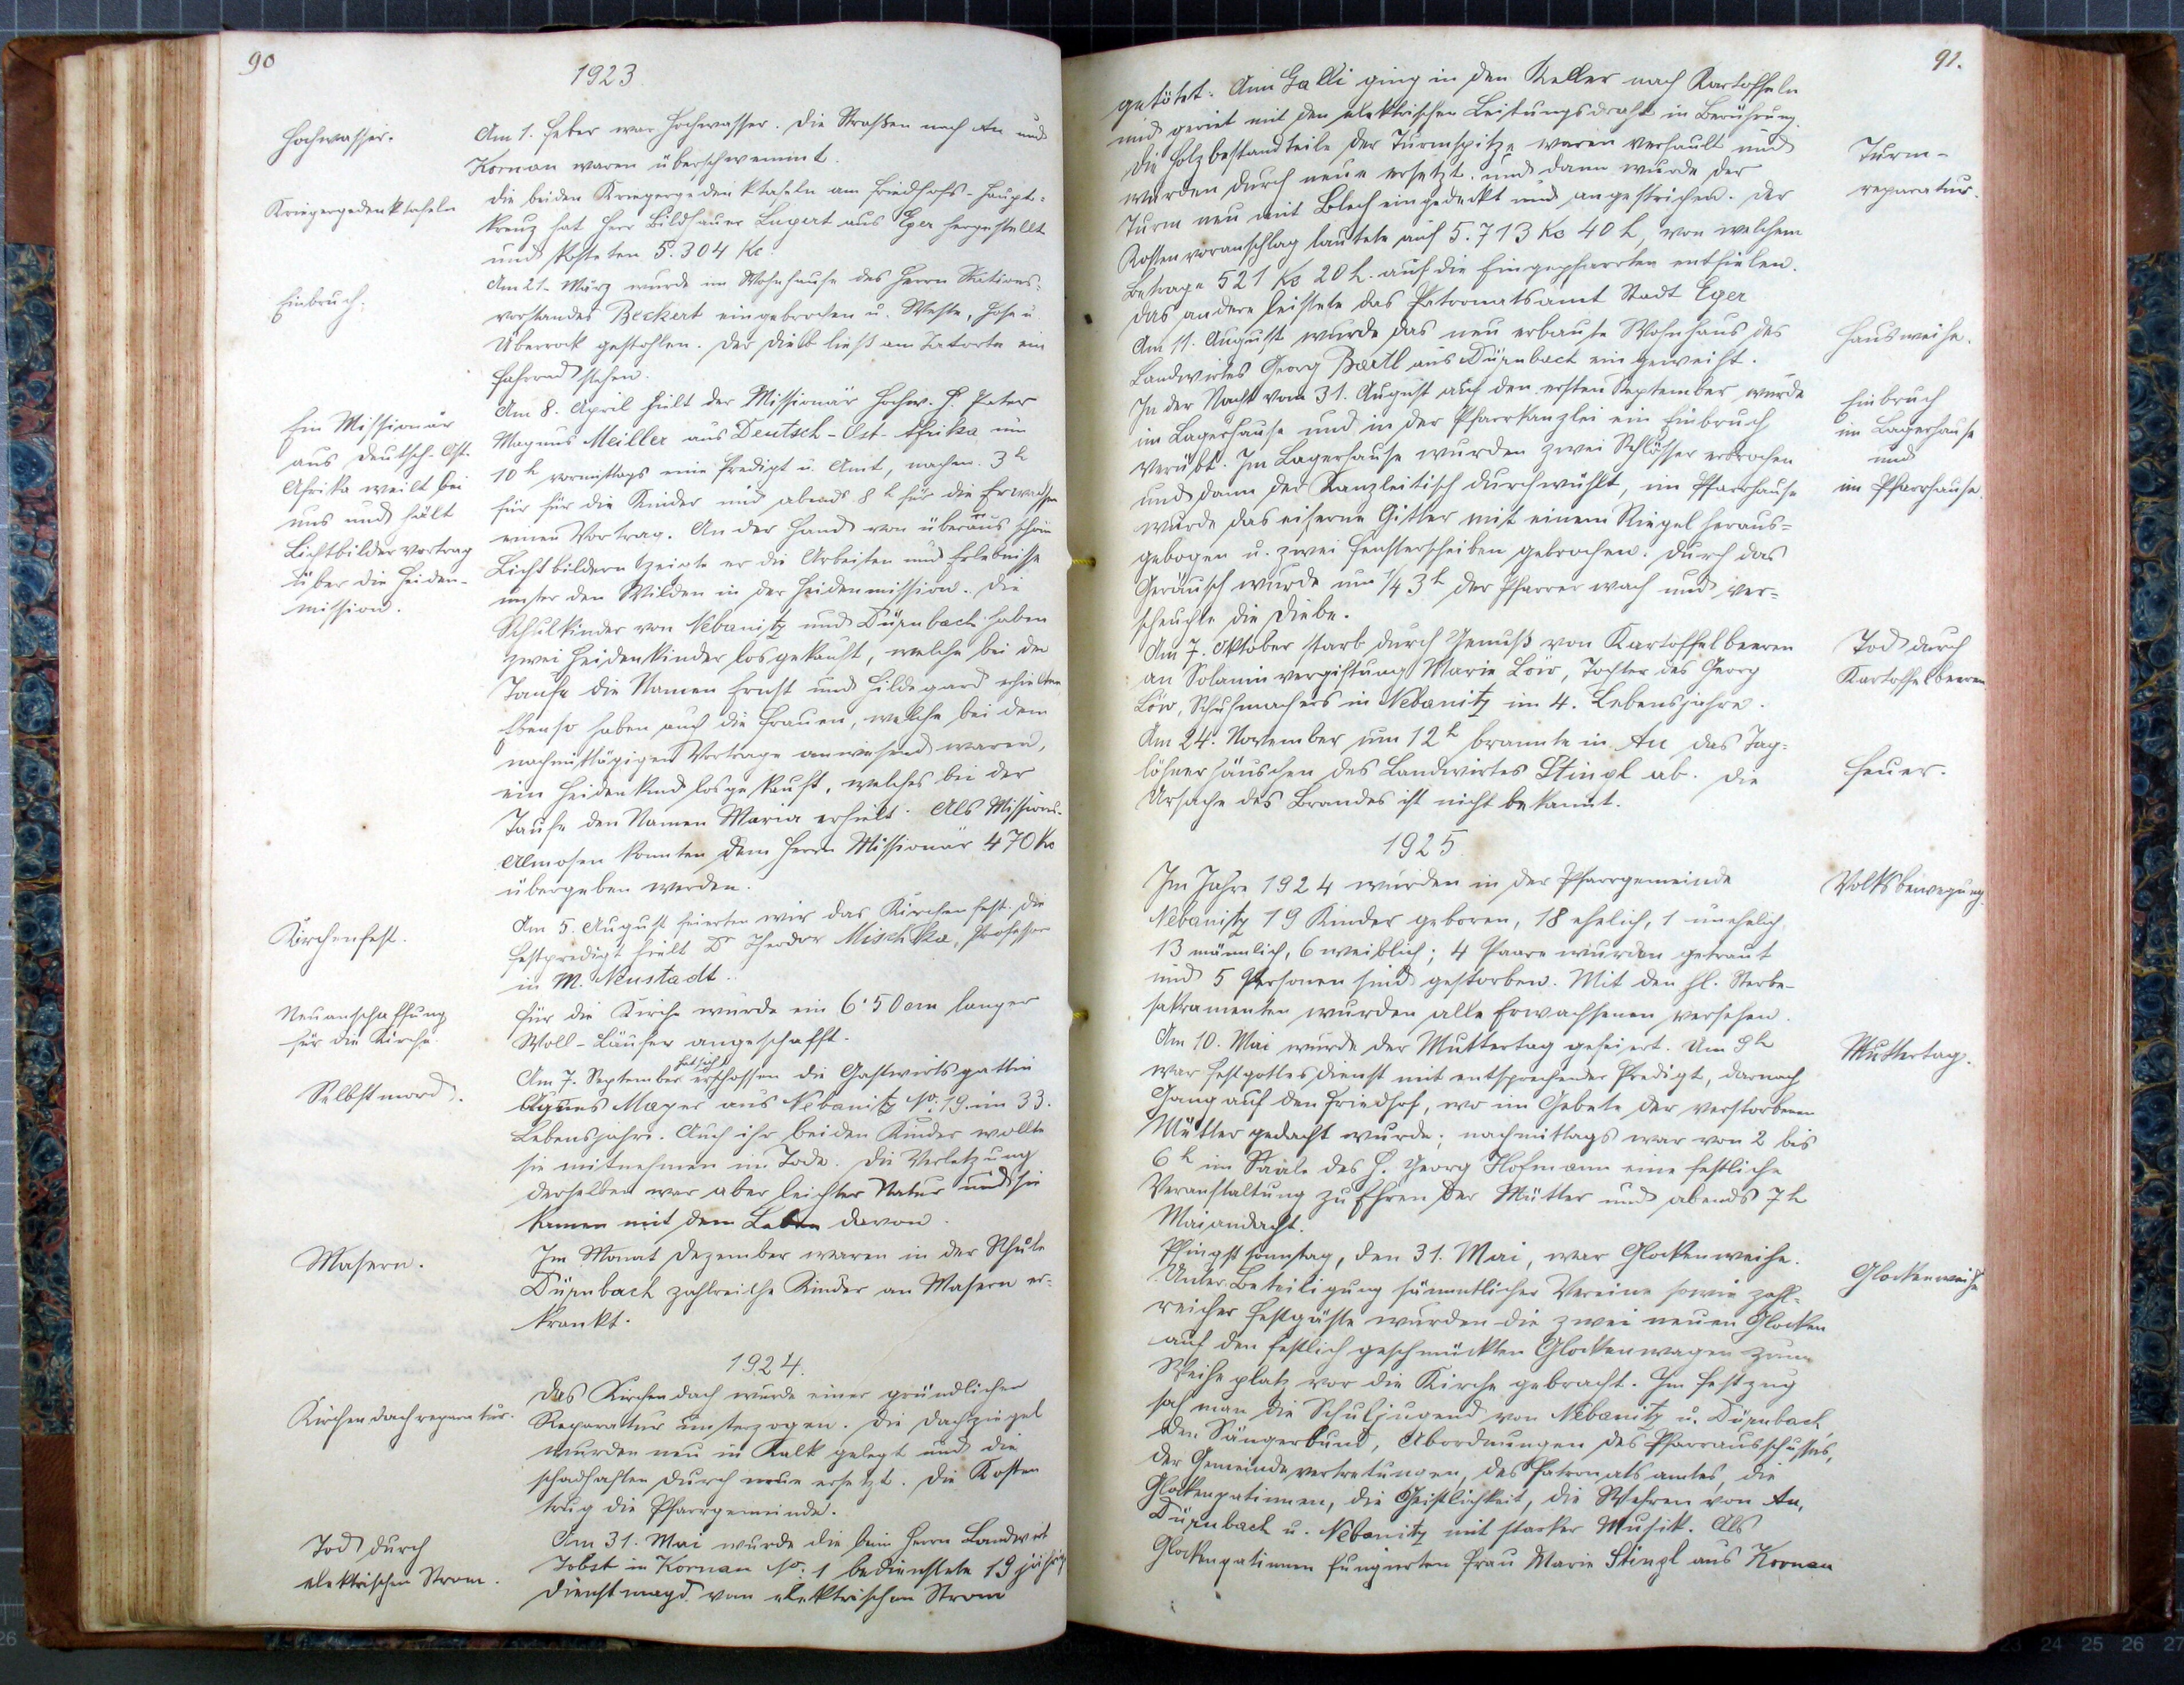 90
1923
Hochwasser.
Am 1. Feber war Hochwasser. Die Straßen nach Au und
Kornau waren überschwemmt.
Kriegergedenktafeln
Die beiden Kriegergedenktafeln am Friedhofs-Haupt=
kreuz hat Herr Bildhauer Lugert aus Eger hergestellt
und kosteten 5.304 Kc.
Einbruch.
Am 21. März wurde im Wohnhause des Herrn Stations=
vorstandes Beckert eingebrochen u. Weste, Hose u.
Überrock gestohlen. Der Dieb ließ am Tatorte ein
Fahrrad stehen.
Ein Missionär
aus Deutsch-Ost-
Afrika weilt bei
uns und hält
Lichtbildervortrag
über die Heiden-
mission.
Am 8. April hielt der Missionär Hochw. H. Pater
Magnus Meiller aus Deutsch-Ost-Afrika um
10 h vormittags eine Predigt u. Amt, nachm. 3 h
für für die Kinder und abends 8 h für die Erwachsen
einen Vortrag. An der Hand von überaus schön
Lichtbildern zeigte er die Arbeiten und Erlebnisse
unter den Wilden in der Heidenmission. Die
Schulkinder von Nebanitz und Dürnbach haben
zwei Heidenkinder losgekauft, welche bei der
Taufe die Namen Ernst und Hildegard erhielten
Ebenso haben auch die Frauen, welche bei dem
nachmittägigen Vortrage anwesend waren,
ein Heidenkind losgekauft, welches bei der
Taufe den Namen Maria erhielt. Als Missions-
Almosen konnten dem Herrn Missionär 470 Kc
übergeben werden.
Kirchenfest.
Am 5. August feierten wir das Kirchenfest. Die
Festpredigt hielt Dr Theodor Mischka, Professor
in M. Neustadt.
Neuanschaffung
für die Kirche.
Für die Kirche wurde ein 6·50 cm langer
Woll-Läufer angeschafft.
Selbstmord.
hat sich
Am 7. September erschossen die Gastwirtsgattin
Agnes Mayer aus Nebanitz No: 19. im 33.
Lebensjahre. Auch ihr beiden Kinder wollte
sie mitnehmen im Tode. Die Verletzung
derselben war aber leichter Natur und sie
kamen mit dem Leben davon.
Masern.
Im Monat Dezember waren in der Schule
Dürnbach zahlreiche Kinder an Masern er=
krankt.
1924.
Kirchendachreparatur.
Das Kirchendach wurde einer gründlichen
Reparatur unterzogen. Die Dachziegel
wurden neu in Kalk gelegt und die
schadhaften durch neue ersetzt. Die Kosten
trug die Pfarrgemeinde.
Tod durch
elektrischen Strom.
Am 31. Mai wurde die beim Herrn Landwirt
Jobst in Kornau No: 1 bedienstete 19 jährig
Dienstmagd vom elektrischen Strom
91.
getötet. Ann Galli ging in den Keller nach Kartoffeln
und geriet mit den elektrischen Leitungsdraht in Berührung.
Turm-
reparatur.
Die Holzbestandteile der Turmspitze waren verfault und
wurden durch neue ersetzt. und dann wurde der
Turm neu mit Blech eingedeckt und angestrichen. Der
Kostenvoranschlag lautete auf 5.713 Kc 40 h, von welchem
Betrage 521 Kc 20 h. auf die Eingepfarrten entfielen.
Das andere leistete das Patronatsamt Stadt Eger
Hausweihe.
Am 11. August wurde das neu erbaute Wohnhaus des
Landwirtes Georg Bartl aus Dürnbach eingeweiht.
Einbruch
im Lagerhause
und
im Pfarrhause.
In der Nacht vom 31. August auf den ersten September wurde
im Lagerhause und in der Pfarrkanzlei ein Einbruch
verübt. Im Lagerhause wurden zwei Schlösser erbrochen
und dann der Kanzleitisch durchwühlt, im Pfarrhause
wurde das eiserne Gitter mit einem Riegel heraus=
gebogen u. zwei Fensterscheiben gebrochen. Durch das
Geräusch wurde um 1/4 3 h der Pfarrer wach und ver=
scheuchte die Diebe.
Tod durch
Kartoffelbeeren
Am 7. Oktober starb durch Genuß von Kartoffelbeeren
an Solaninvergiftung Marie Löw, Tochter des Georg
Löw, Schuhmachers in Nebanitz im 4. Lebensjahre.
Feuer.
Am 24. November um 12 h brannte in Au das Tag=
löhnerhäuschen des Landwirtes Stingl ab. Die
Ursache des Brandes ist nicht bekannt.
1925
Volksbewegung.
Im Jahre 1924 wurden in der Pfarrgemeinde
Nebanitz 19 Kinder geboren, 18 ehelich, 1 unehelich
13 männlich, 6 weiblich; 4 Paare wurden getraut
und 5 Personen sind gestorben. Mit den hl. Sterbe-
sakramenten wurden alle Erwachsenen versehen.
Muttertag.
Am 10. Mai wurde der Muttertag gefeiert. Um 9 h
war Festgottesdienst mit entsprechender Predigt, darnach
Gang auf den Friedhof, wo im Gebete der verstorbenen
Mütter gedacht wurde; nachmittags war von 2 bis
6 h im Saale des H. Georg Hofmann eine festliche
Veranstaltung zu Ehren der Mütter und abends 7 h
Maiandacht.
Glockenweihe
Pfingstsonntag, den 31. Mai, war Glockenweihe.
Unter Beteiligung sämmtlicher Vereine sowie zahl=
reicher Festgäste wurden die zwei neuen Glocken
auf den festlich geschmückten Glockenwagen zum
Weiheplatz vor die Kirche gebracht. Im Festzug
sah man die Schuljugend von Nebanitz u. Dürnbach,
den Sängerbund, Abordnungen des Pfarrausschusses,
der Gemeindevertretungen, des Patronatsamtes, die
Glockenpatinnen, die Geistlichkeit, die Wehren von Au,
Dürnbach u. Nebanitz mit starker Musik. Als
Glockenpatinnen fungierten Frau Marie Stingl aus Kornau
26
23 24 25 26 27